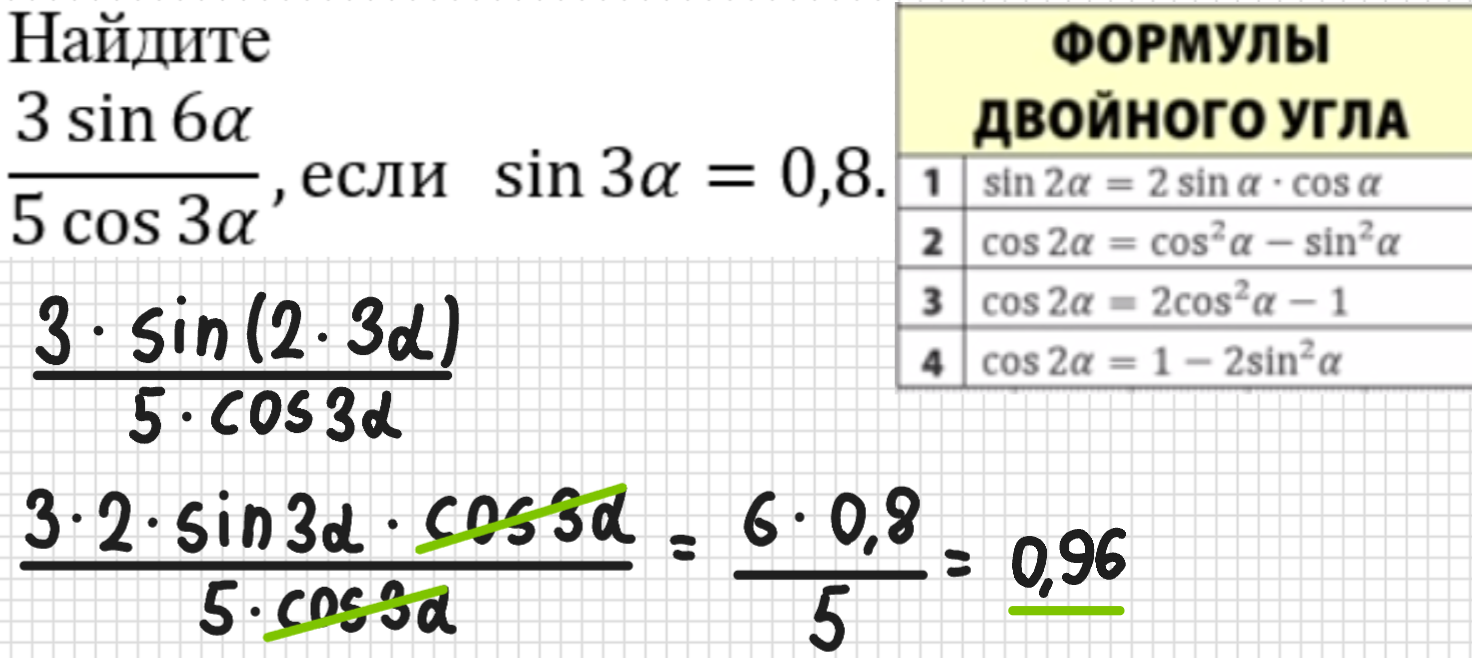 Найдите
3 sin 6α
5 cos 3α
, если sin 3α = 0,8.
ФОРМУЛЫ
ДВОЙНОГО УГЛА
1 sin 2α = 2 sin α · cos α
2 cos 2α = cos²α − sin²α
3 cos 2α = 2cos²α − 1
4 cos 2α = 1 − 2sin²α
3 · sin(2 · 3α)
5 · cos3α
3 · 2 · sin3α · cos3α
5 · cos3α
= 6 · 0,8
5
= 0,96